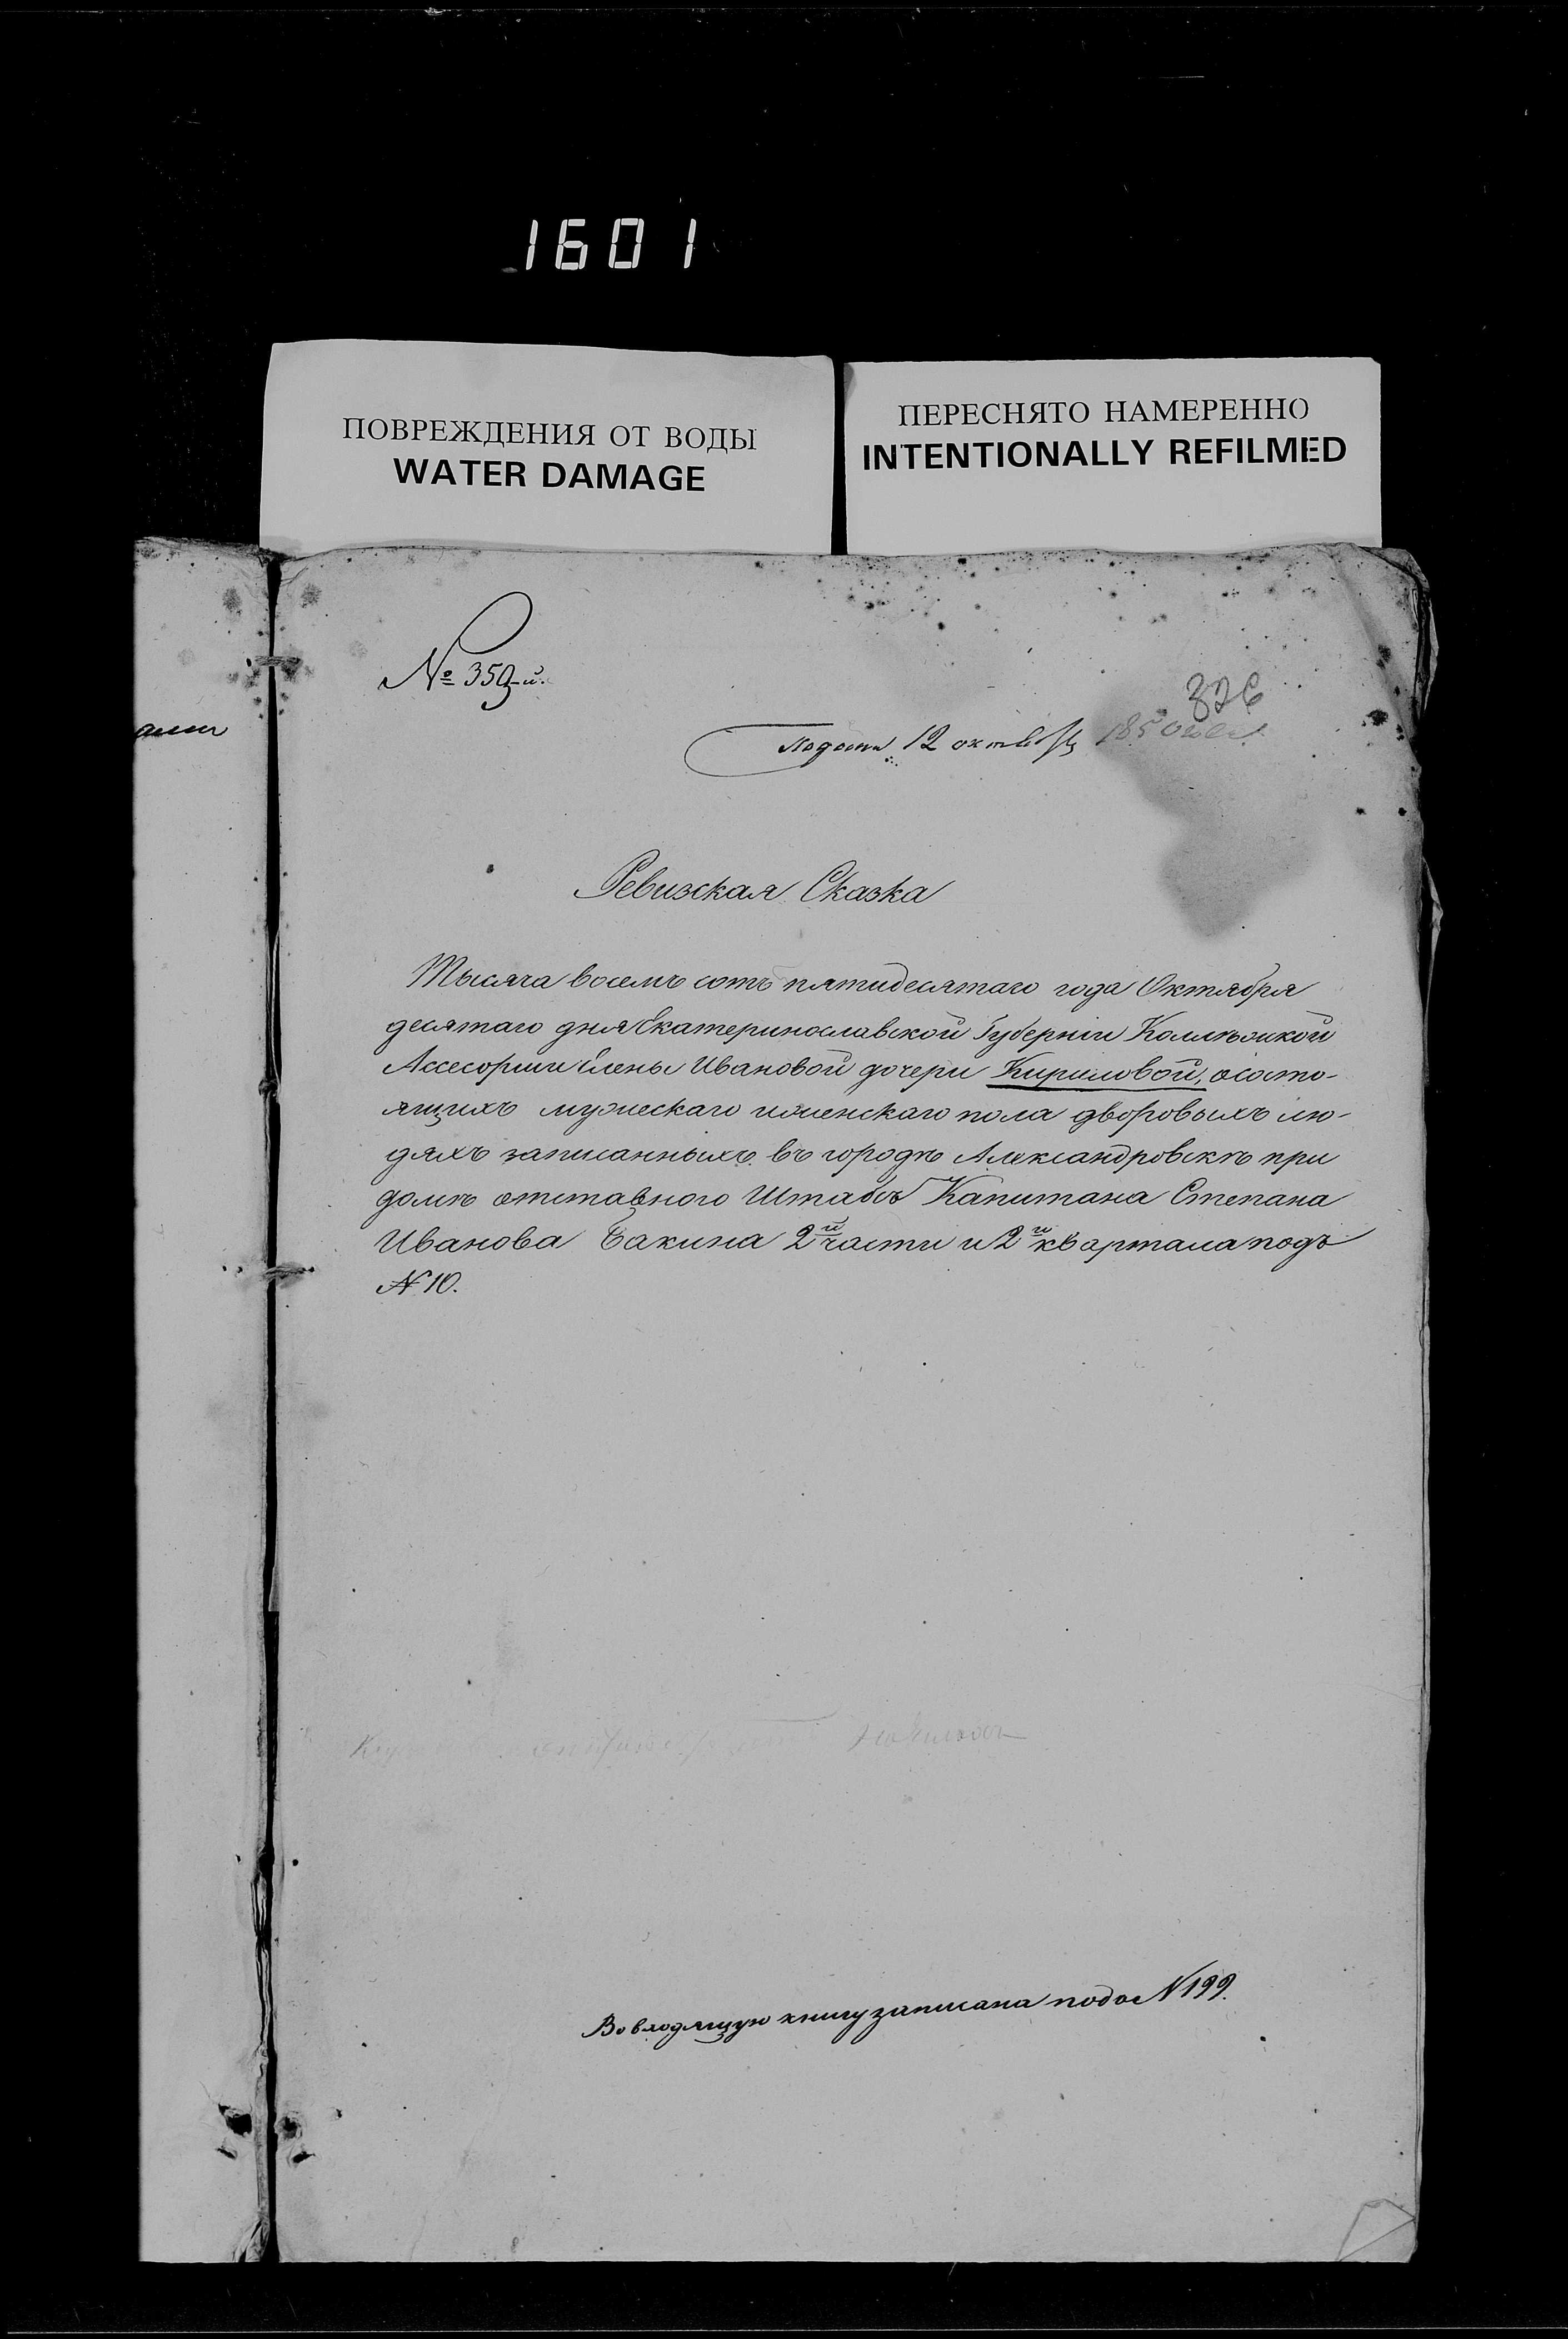 1601
ПОВРЕЖДЕНИЯ ОТ ВОДЫ
WATER DAMAGE
ПЕРЕСНЯТО НАМЕРЕННО
INTENTIONALLY REFILMED
№ 359-й.
326
Подана 12 октября 1850 года
Ревизская Сказка
Тысяча восемь сотъ пятидесятаго года Октября
десятаго дня Екатеринославской Губерніи Коллежской
Ассесорши Елены Ивановой дочери Кириловой, о состо-
ящихъ мужескаго и женскаго пола дворовыхъ лю-
дяхъ записанныхъ въ городѣ Александровскѣ при
домѣ отставного Штабсъ Капитана Степана
Иванова Бакина 2й части и 2й квартала подъ
N 10.
Во входящую книгу записана подъ N 199.